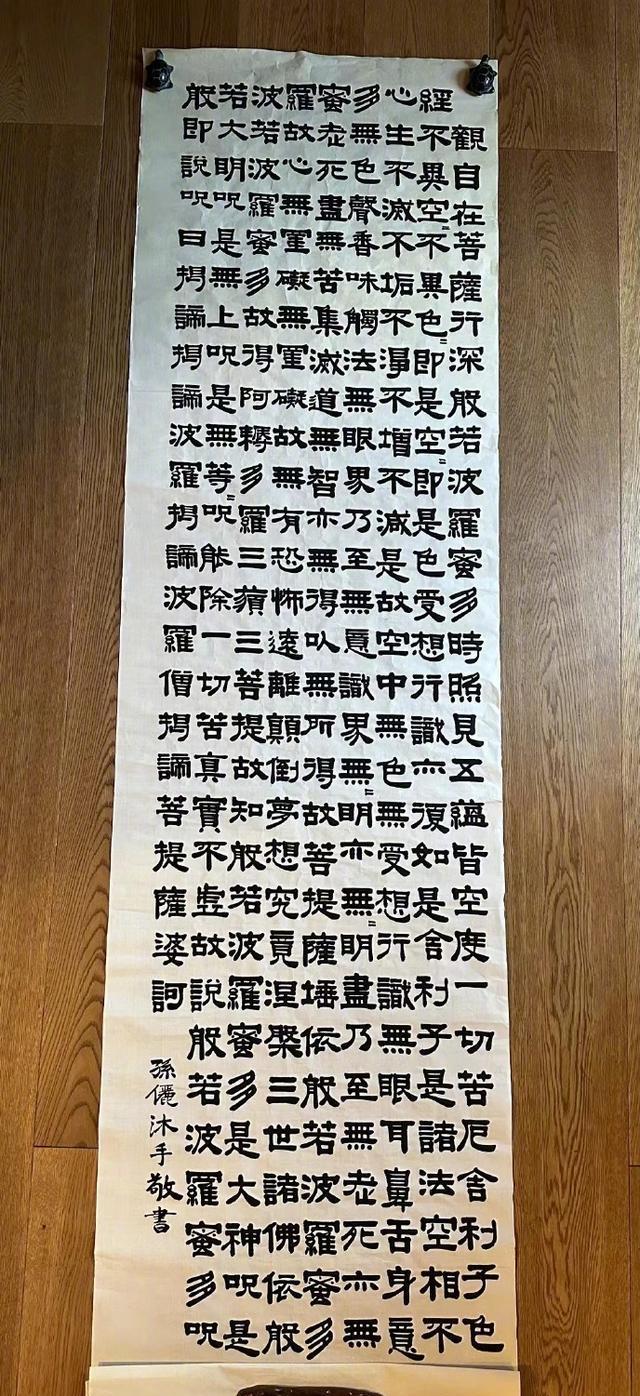 般若波羅蜜多心經
觀自在菩薩行深般若波羅蜜多時照見五蘊皆空度一切苦厄舍利子色
不異空〻不異色〻即是空〻即是色受想行識亦復如是舍利子是諸法空相不
生不滅不垢不淨不增不減是故空中無色無受想行識無眼耳鼻舌身意
無色聲香味觸法無眼界乃至無意識界無〻明亦無〻明盡乃至無老死亦無
老死盡無苦集滅道無智亦無得以無所得故菩提薩埵依般若波羅蜜多
故心無罣礙無罣礙故無有恐怖遠離顛倒夢想究竟涅槃三世諸佛依般
若波羅蜜多故得阿耨多羅三藐三菩提故知般若波羅蜜多是大神呪是
大明呪是無上呪是無等〻呪能除一切苦真實不虛故說般若波羅蜜多呪
即說呪曰揭諦揭諦波羅揭諦波羅僧揭諦菩提薩婆訶
孫儷沐手敬書